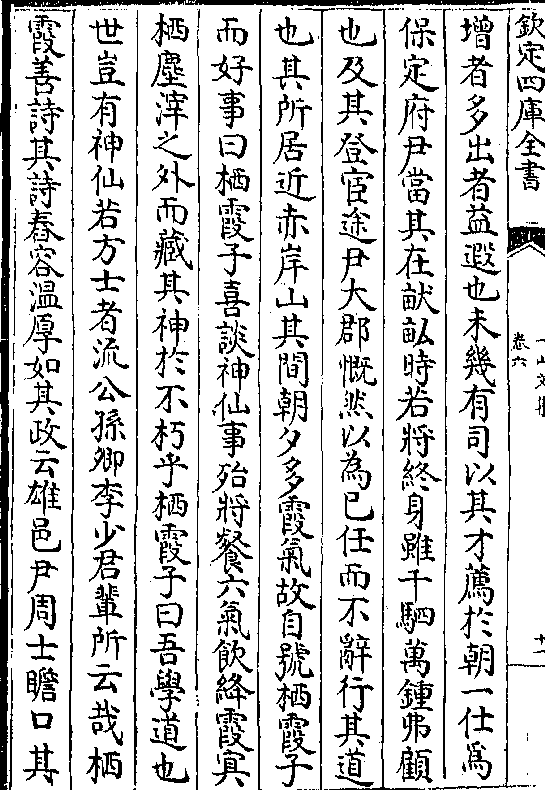 欽定四庫全書
卷六
十一
增者多出者益遐也未幾有司以其才薦於朝一仕為
保定府尹當其在畎畝時若將終身雖千駟萬鍾弗顧
也及其登宦途尹大郡慨然以為已任而不辭行其道
也其所居近赤岸山其間朝夕多霞氣故自號栖霞子
而好事曰栖霞子喜談神仙事殆將餐六氣飲絳霞寘
栖塵滓之外而藏其神於不朽乎栖霞子曰吾學道也
世豈有神仙若方士者流公孫卿李少君輩所云哉栖
霞善詩其詩舂容溫厚如其政云雄邑尹周士瞻口其